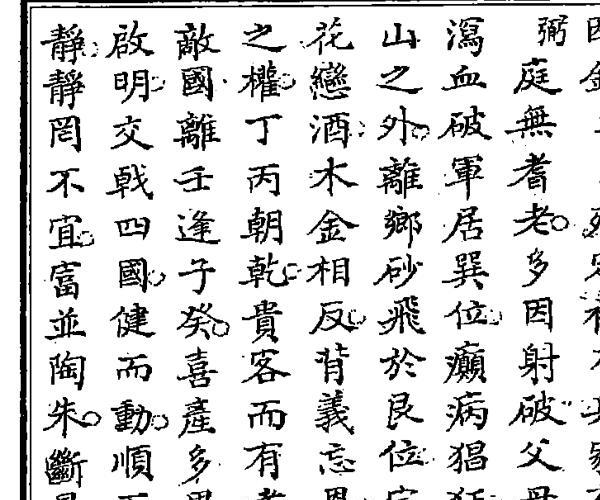 弼庭無耆老。多因射破父
瀉血破軍居巽位。癲病猖
山之外。離鄉砂飛於艮位
花戀酒。木金相反。背義忘
之權。丁丙朝乾。貴客而有
敵國離壬逢子癸。喜產多
啟明。交戟四國。健而動。順
靜。靜罔不宜。富並陶朱。斷